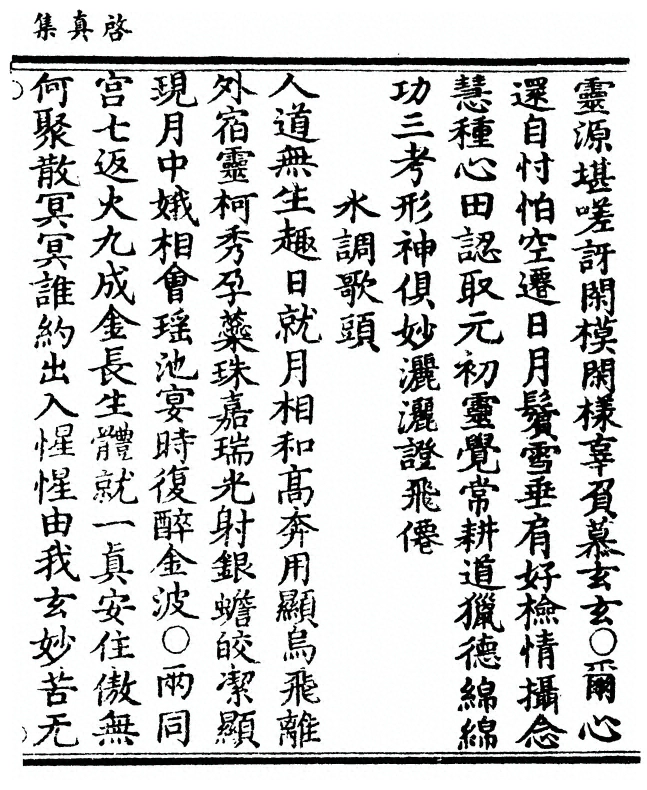 啓真集
靈源堪嗟訝閑模閑樣辜負慕玄玄○爾心
還自忖怕空遷日月鬢雪垂肩好檢情攝念
慧種心田認取元初靈覺常耕道獵德綿綿
功三考形神俱妙灑灑證飛僊
水調歌頭
人道無生趣日就月相和高奔用顯烏飛離
外宿靈柯秀孕蘂珠嘉瑞光射銀蟾皎潔顯
現月中娥相會瑶池宴時復醉金波○兩同
宫七返火九成金長生軆就一真安住傲無
何聚散冥冥誰約出入惺惺由我玄妙苦无